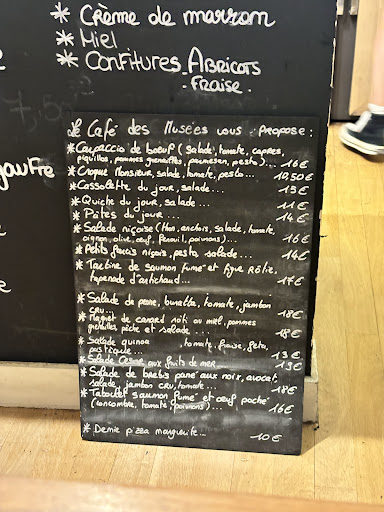 * Crème de marron
* Miel
* Confitures Abricots
- Fraise -
gaufre
Le Café des Musées vous propose :
* Carpaccio de boeuf (salade, tomate, capres,
piquillos, pommes grenailles, parmesan, pesto)... 16€
* Croque Monsieur, salade, tomate, pesto... 10,50€
* Cassolette du jour, salade... 15€
* Quiche du jour, salade... 11€
* Pâtes du jour... 14€
* Salade niçoise (thon, anchois, salade, tomate,
oignon, olive, œuf, fenouil, poivrons)... 16€
* Petits farcis niçois, pesto, salade... 14€
* Tartine de saumon fumé et figue Rôtie,
tapenade d'artichaud... 17€
* Salade de peche, burratta, tomate, jambon
cru... 18€
* Magret de canard rôti au miel, pommes
grenailles pêche et salade... 18€
* Salade quinoa , tomate, fraise, feta,
pasteque... 13€
* Salade César aux fruits de mer 13€
* Salade de brebis pané aux noix, avocat,
salade, jambon cru, tomate... 18€
* Taboulet saumon fumé et œuf poché
(concombre, tomate, poivrons)... 16€
* Demie pizza marguerite... 10€